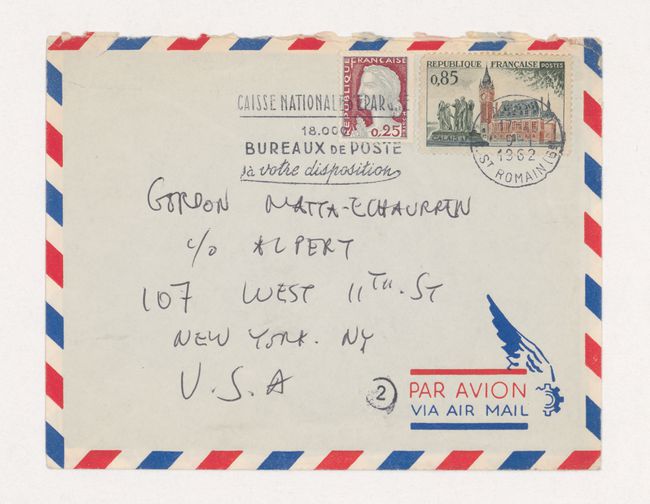 RÉPUBLIQUE FRANÇAISE
0,25
RÉPUBLIQUE FRANÇAISE POSTES
0,85
CALAIS
CAISSE NATIONALE D'ÉPARGNE
18.000
BUREAUX DE POSTE
à votre disposition
1962
ST ROMAIN
GORDON MATTA-ECHAURREN
c/o ALPERT
107 WEST 11TH. ST
NEW YORK. NY
U.S.A
2
PAR AVION
VIA AIR MAIL